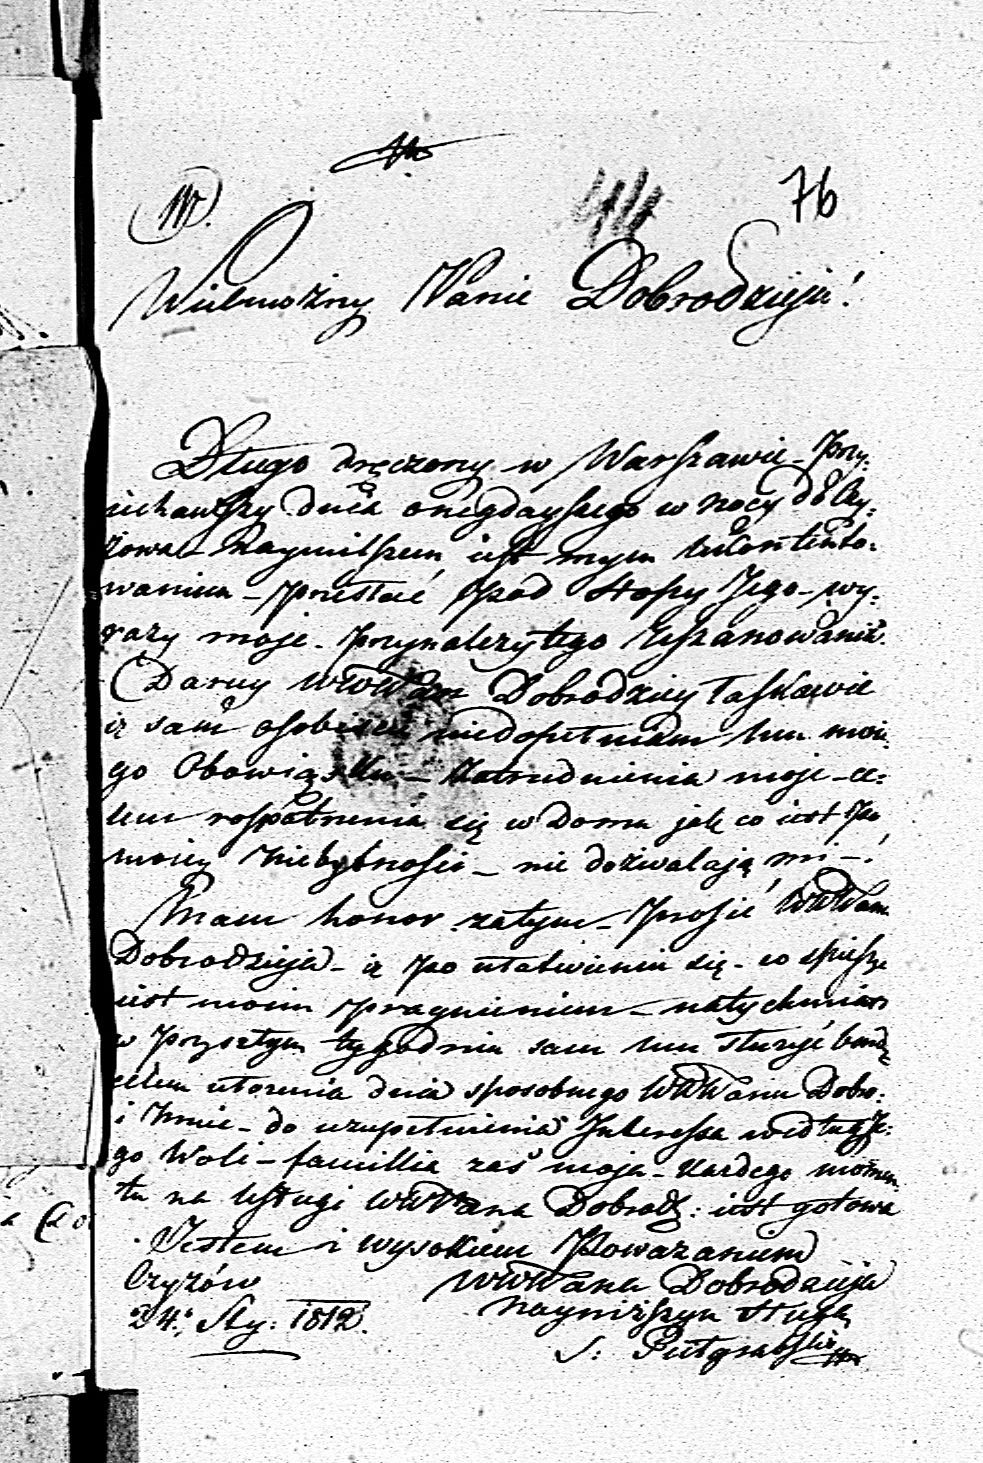 76
Wielmożny Panie Dobrodzieju!
Długo dręczony w Warszawie – Przy:
iechawszy dnia onegdayszego w nocy do Czy:
żowa – naymilszem iest mym ukontento:
waniem – przesłać pod stopy Jego – wy:
razy moje – przynależytego uszanowania.
(Daruy WWPan Dobrodziey łaskawie
iż sam osobiscie niedopełniam tem moie:
go Obowiązku – zatrudnienia moje – ce:
lem rospatrzenia się w Domu jak co iest po
moiey niebytnosci – nie dozwalają mi – !
Mam honor zatym – prosić WWPana
Dobrodzieja – iż po ułatwieniu się – co spiesznie
iest moim pragnieniem – natychmiast
w przyszłym tygodniu sam mu służyć będę
celem ułożenia dnia sposobnego WWPanu Dobro:
i mnie – do uzupełnienia Interessu według Je:
go Woli – familia zaś moja – każdego momen:
tu na usługi WWPana Dobrodz: iest gotowa
Jestem z wysokiem Poważaniem
WWPana Dobrodzieja
Czyżów
nayniższym sługą
24. Sty: 1812.